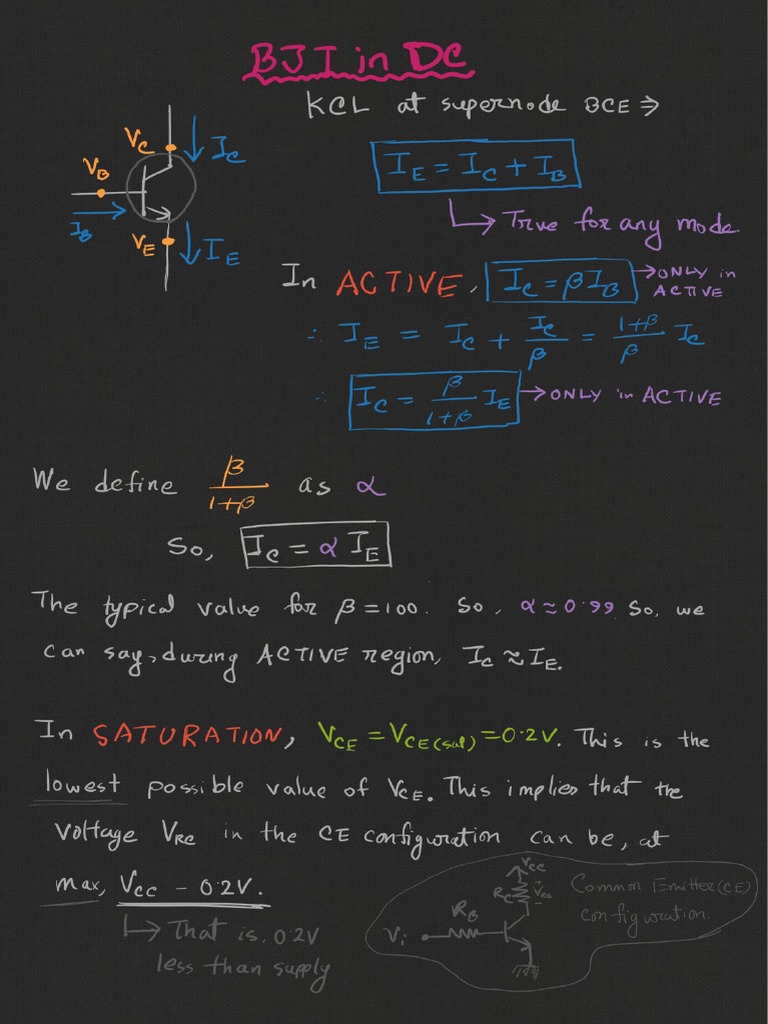 BJT in DC
KCL at supernode BCE ⇒
V_C
I_C
V_B
I_B
V_E
I_E
I_E = I_C + I_B
↳ True for any mode.
In ACTIVE, I_C = βI_B → ONLY in ACTIVE
∴ I_E = I_C + I_C/β = (1+β)/β I_C
∴ I_C = β/(1+β) I_E → ONLY in ACTIVE
We define β/(1+β) as α
So, I_C = α I_E
The typical value for β = 100. So, α ≈ 0.99 So, we
can say, during ACTIVE region, I_C ≈ I_E.
In SATURATION, V_CE = V_CE(sat) = 0.2V. This is the
lowest possible value of V_CE. This implies that the
voltage V_RC in the CE configuration can be, at
max, V_CC - 0.2V.
↳ That is, 0.2V
less than supply
V_CC
R_C
R_B
V_i
Common Emitter (CE)
configuration.